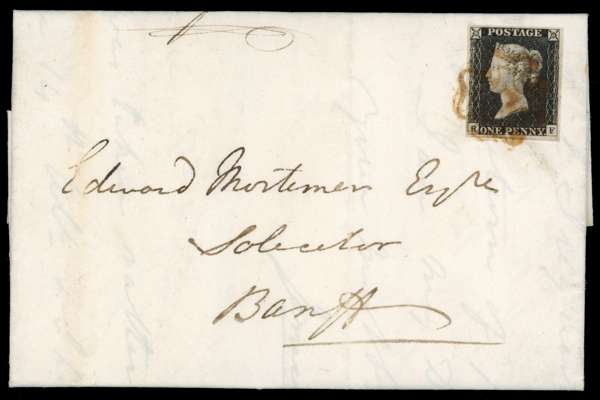 POSTAGE
R ONE PENNY F
Edward Mortimer Esqre
Solicitor
Banff